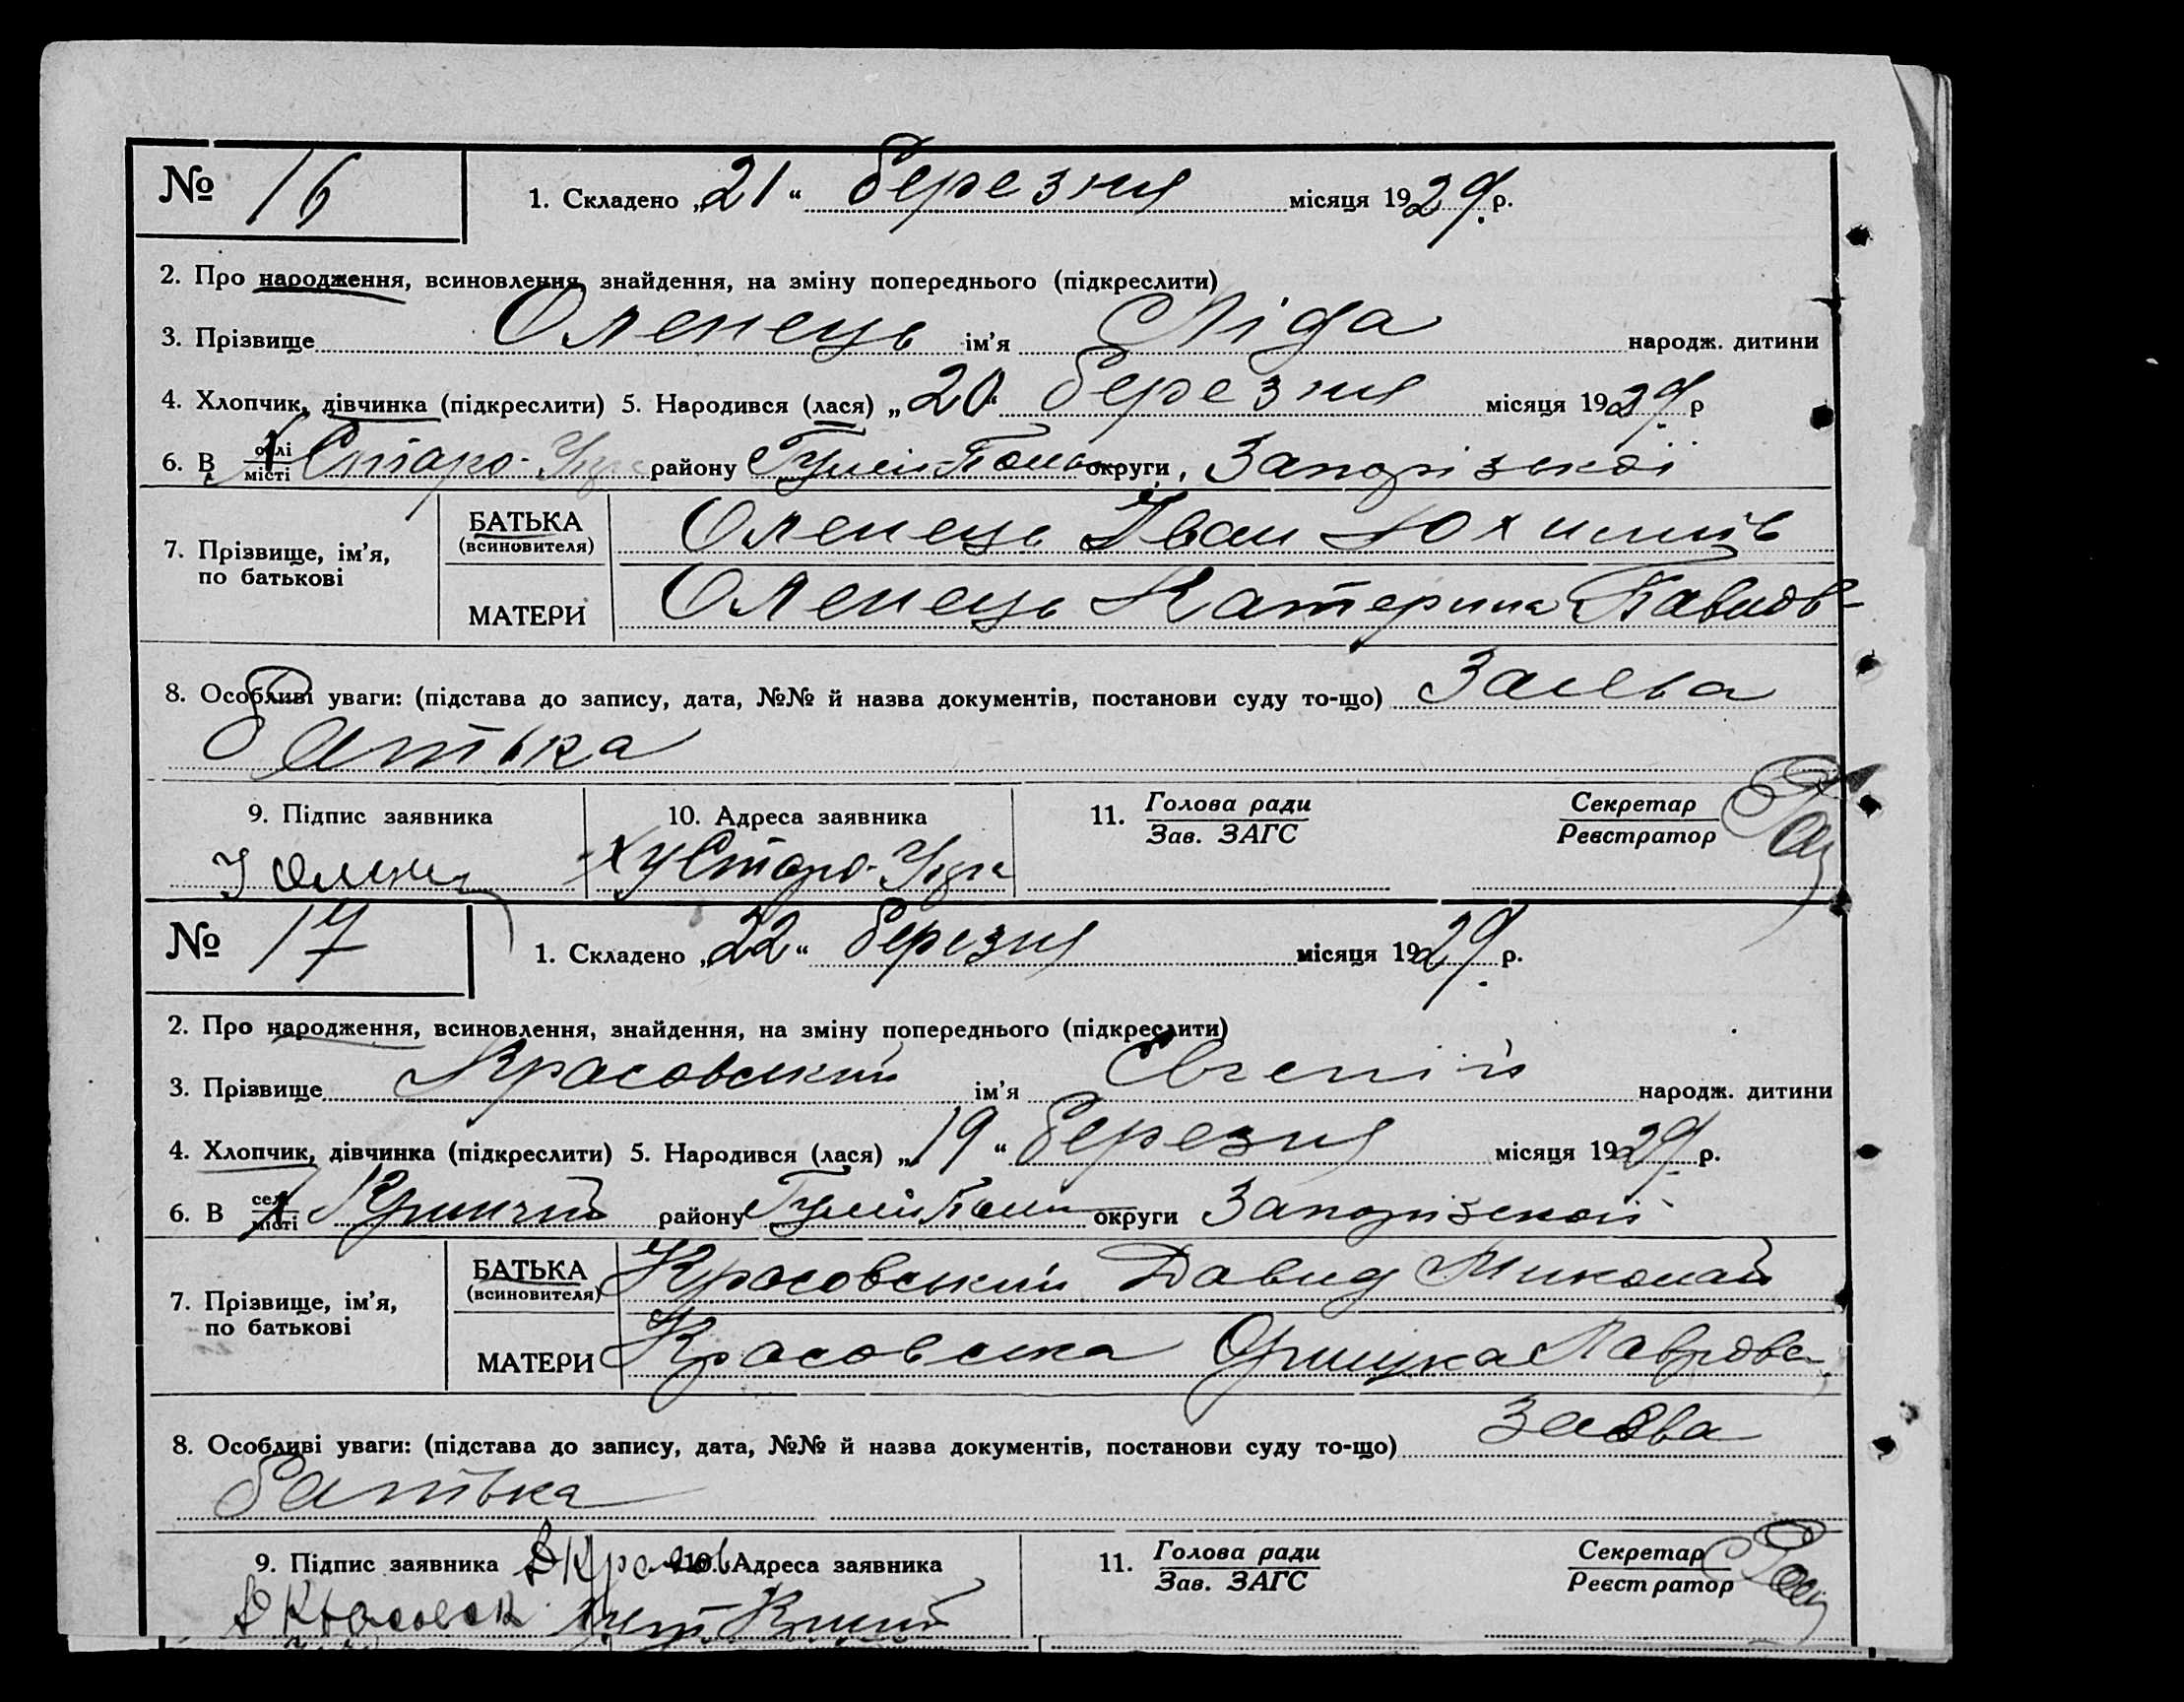 № 16
1. Складено „21“ березня місяця 1929 р.
2. Про народження, всиновлення, знайдення, на зміну попереднього (підкреслити)
3. Прізвище Оленець ім'я Ліда народж. дитини
4. Хлопчик, дівчинка (підкреслити) 5. Народився (лася) „20“ березня місяця 1929 р
6. В селі місті Старо- району Гуляй-Поль округи Запорізької
7. Прізвище, ім'я, по батькові
БАТЬКА (всиновителя) Оленець Іван
МАТЕРИ Оленець Катерина
8. Особливі уваги: (підстава до запису, дата, №№ й назва документів, постанови суду то-що) Заява
Батька
9. Підпис заявника 10. Адреса заявника 11. Голова ради Зав. ЗАГС Секретар Реєстратор
Старо-
№ 17
1. Складено „22“ березня місяця 1929 р.
2. Про народження, всиновлення, знайдення, на зміну попереднього (підкреслити)
3. Прізвище Красовський ім'я Євгеній народж. дитини
4. Хлопчик, дівчинка (підкреслити) 5. Народився (лася) „19“ березня місяця 1929 р.
6. В селі місті району округи Запорізької
7. Прізвище, ім'я, по батькові
БАТЬКА (всиновителя) Красовський Давид Миколай
МАТЕРИ Красовська
8. Особливі уваги: (підстава до запису, дата, №№ й назва документів, постанови суду то-що) Заява
Батька
9. Підпис заявника 10. Адреса заявника 11. Голова ради Зав. ЗАГС Секретар Реєстратор